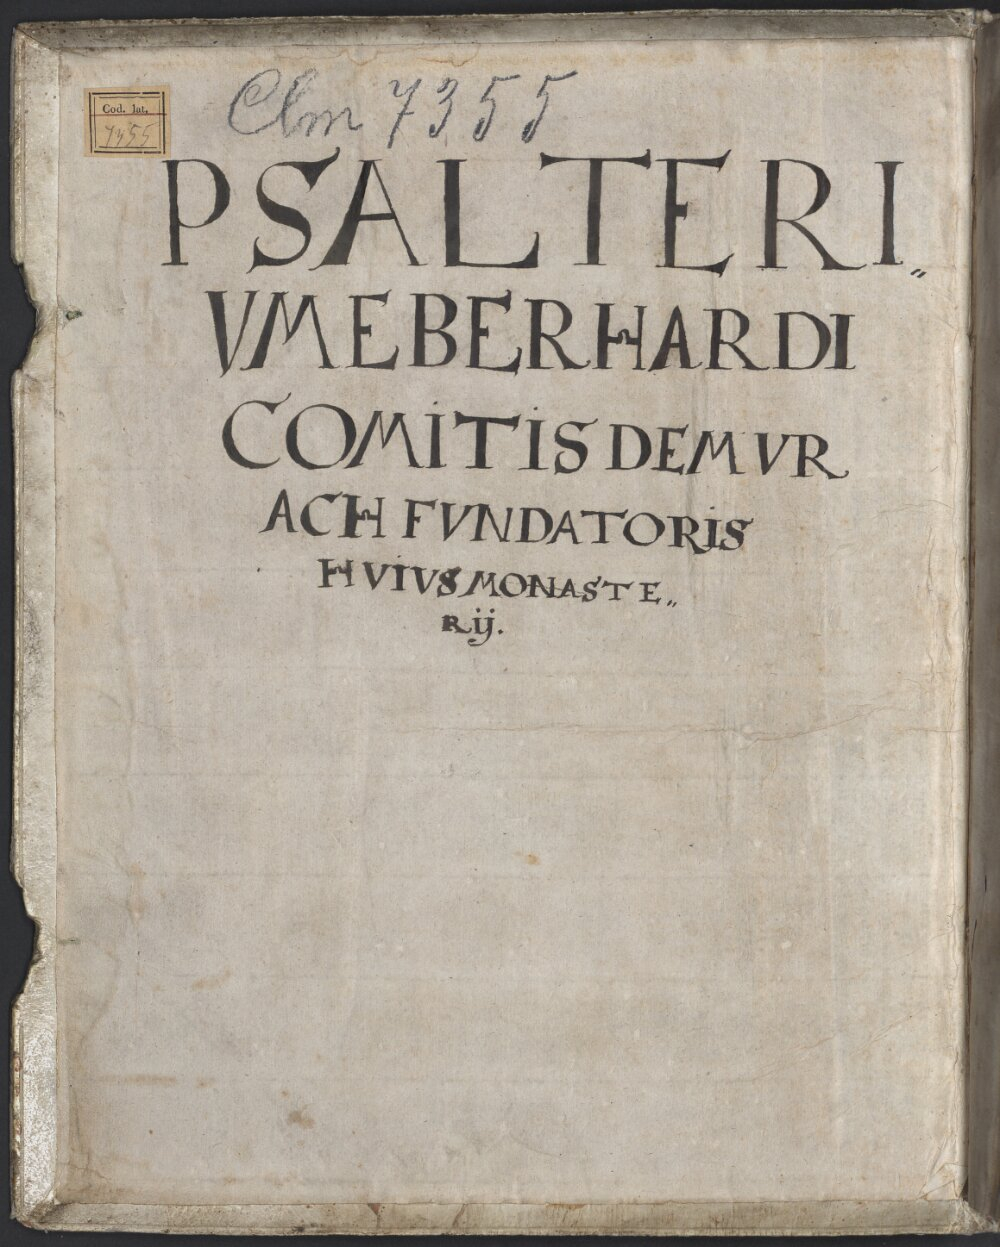 Clm 7355
Cod. lat.
7355
PSALTERI„
VM EBERHARDI
COMITIS DE MVR
ACH FVNDATORIS
HVIVS MONASTE„
Rij.